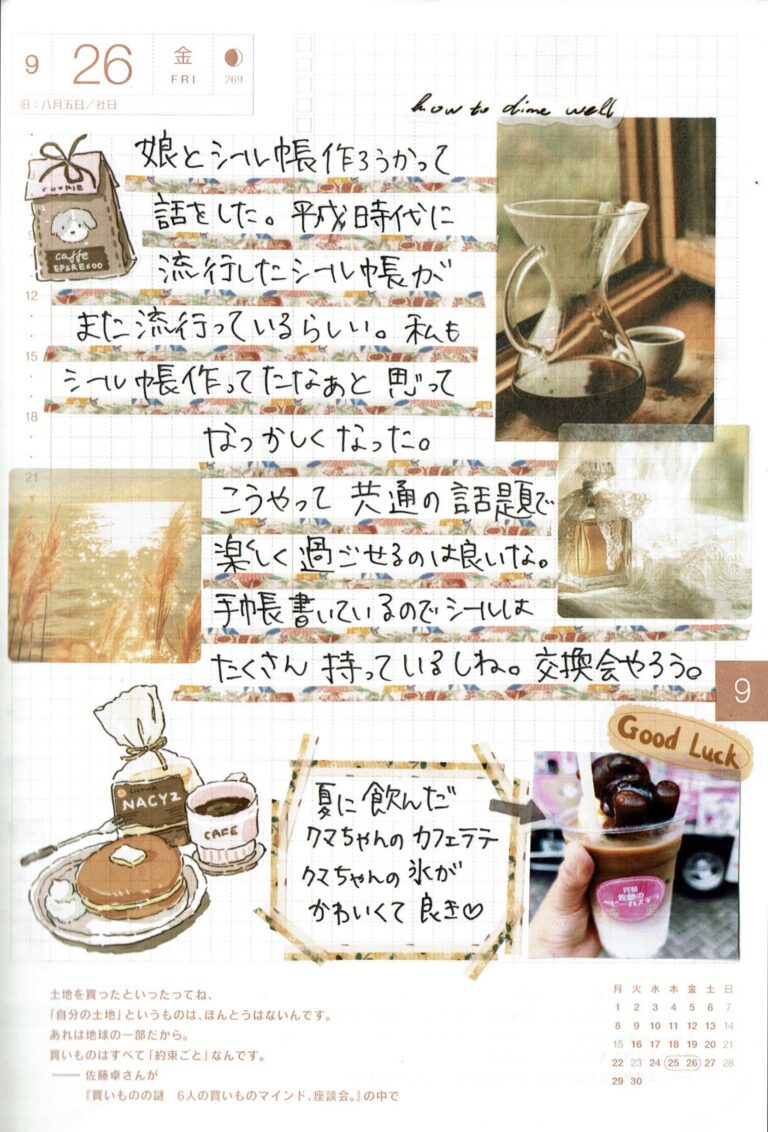 9 26 金 FRI 269
旧：八月五日／社日
how to dime well
娘とシール帳作ろうかって
話をした。平成時代に
流行したシール帳が
また流行っているらしい。私も
シール帳作ってたなぁと思って
なつかしくなった。
こうやって共通の話題で
楽しく過ごせるのは良いな。
手帳書いているのでシールは
たくさん持っているしね。交換会やろう。
COOKIE
caffe
EPSRESOO
12
15
18
21
9
Good Luck
NACYZ
CAFE
夏に飲んだ
クマちゃんのカフェラテ
クマちゃんの氷が
かわいくて良き♡
元祖
佐世の
ベビーカステラ
土地を買ったといったってね、
「自分の土地」というものは、ほんとうはないんです。
あれは地球の一部だから。
買いものはすべて「約束ごと」なんです。
―― 佐藤卓さんが
『買いものの謎　6人の買いものマインド、座談会。』の中で
月 火 水 木 金 土 日
1 2 3 4 5 6 7
8 9 10 11 12 13 14
15 16 17 18 19 20 21
22 23 24 25 26 27 28
29 30